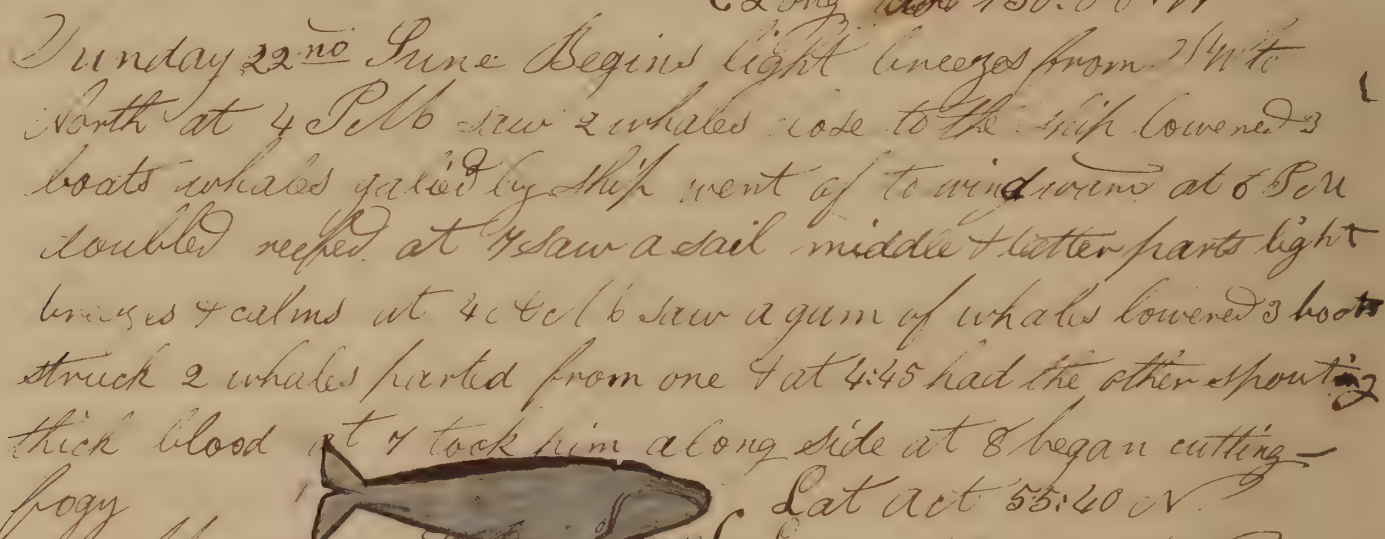 Sunday 22nd June Begins light breezes from to
North at 4 PM saw 2 whales close to the ship lowered 3
boats whales galied by ship went of to windward at 6 PM
doubled reefed at 7 saw a sail middle & latter parts light
breezes & calms at 4 AM saw a gam of whales lowered 3 boats
struck 2 whales parted from one & at 4:45 had the other spouting
thick blood at 7 took him along side at 8 began cutting
fogy Lat act 55:40 N